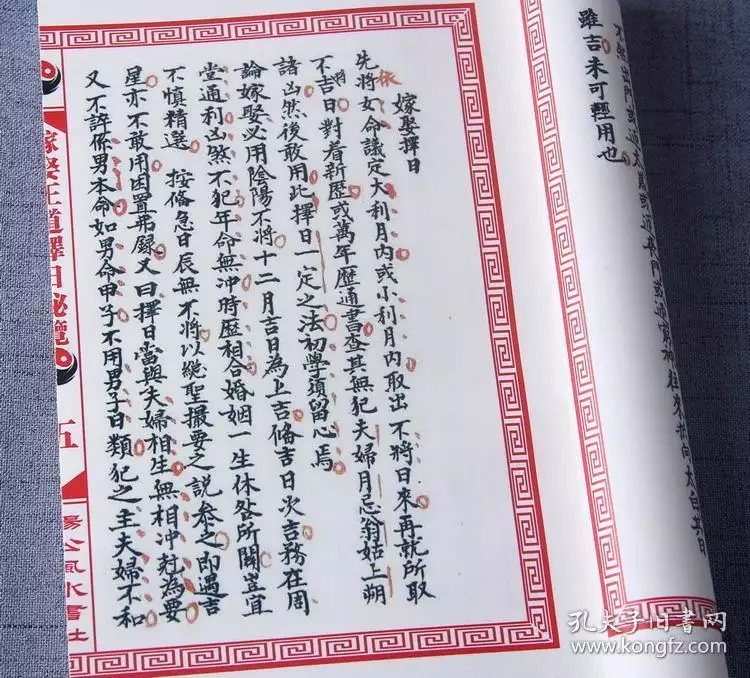 雖吉未可輕用也
嫁娶擇日
依
先將女命議定大利月內或小利月內取出不將日來再就所取
不將吉日對着新歷或萬年歷通書查其無犯夫婦月忌翁姑上朔
諸凶然後敢用此擇日一定之法初學須留心焉
論嫁娶必用陰陽不將十二月吉日為上吉俻吉日次吉務在周
堂通利凶煞不犯年命無冲時歷相合婚姻一生休咎所關豈宜
不慎精選 按俻急日辰無不將以縂聖撮要之說參之即遇吉
星亦不敢用因置弗録又曰擇日當與夫婦相生無相冲尅為要
又不許係男本命如男命甲子不用男子日類犯之主夫婦不和
嫁娶王道擇日秘覽
五
楊公風水書社
孔夫子旧书网
www.kongfz.com